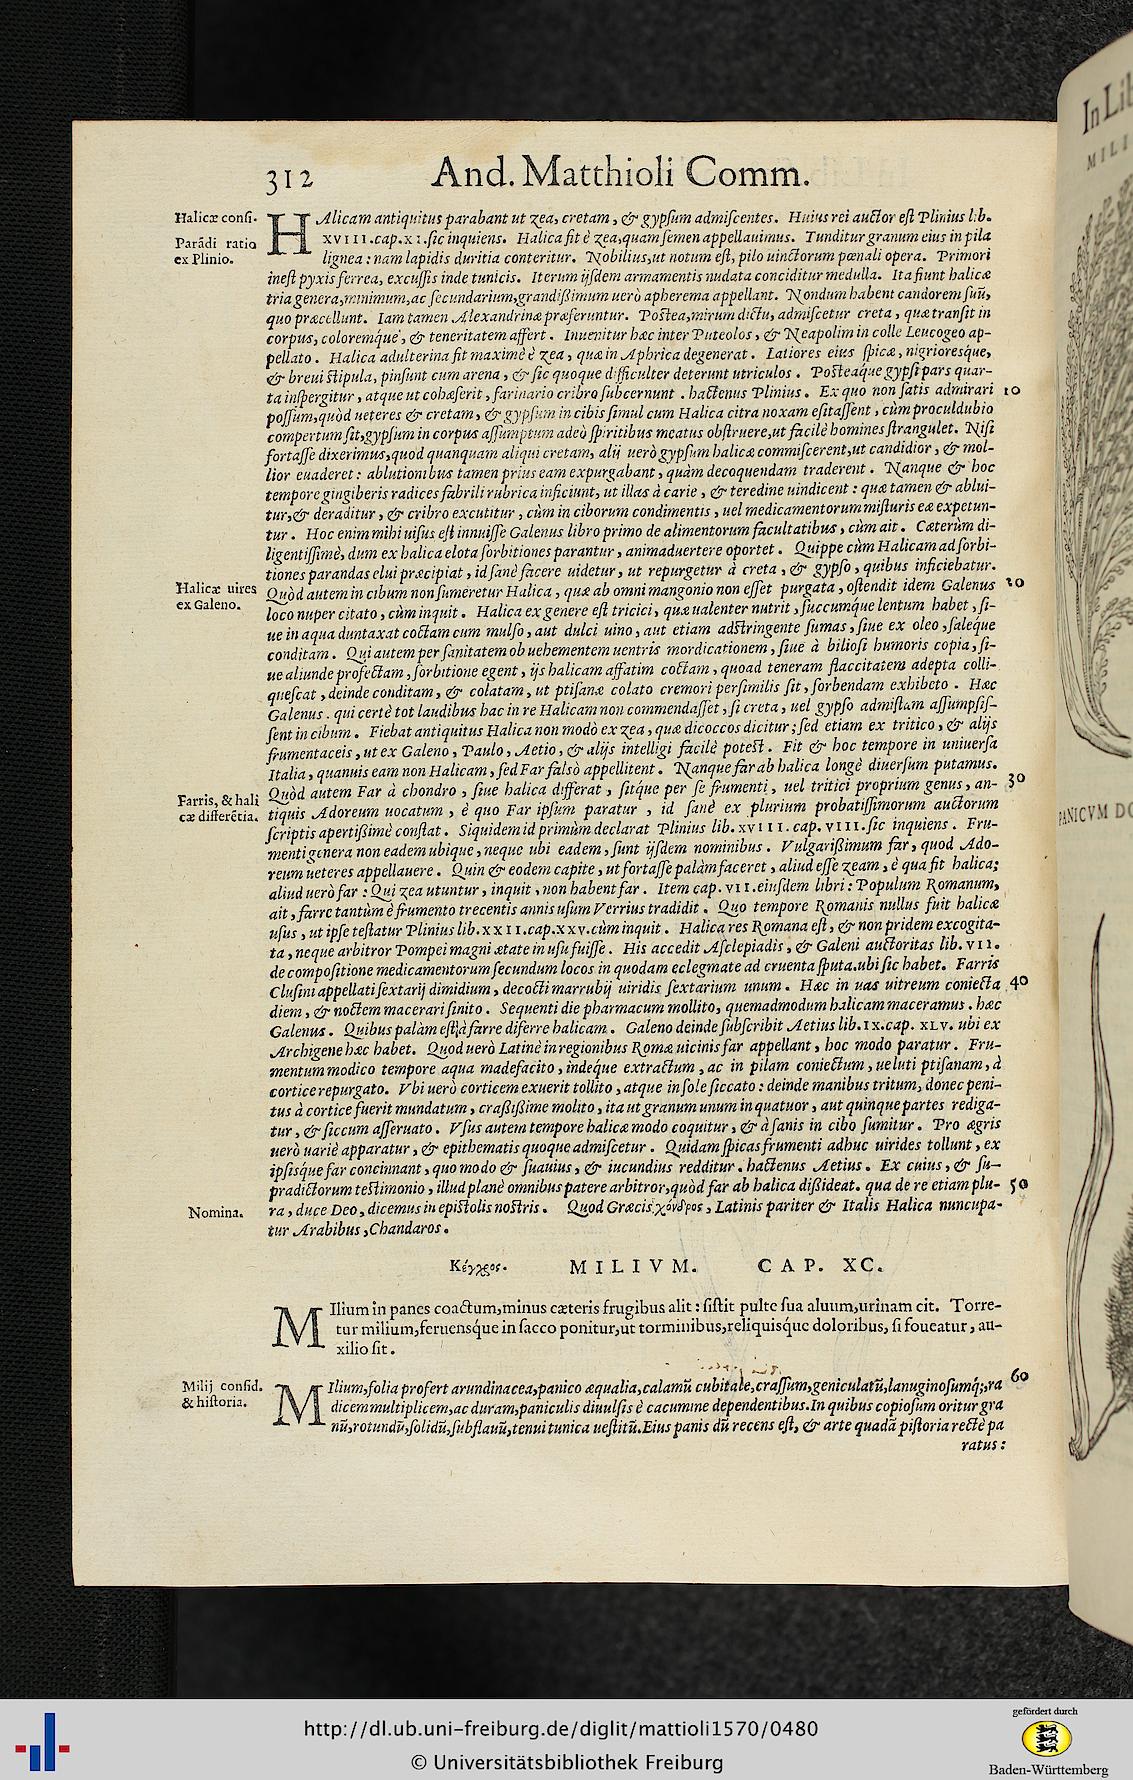 312 And. Matthioli Comm.
Halicæ consi.
Parādi ratio
ex Plinio.
HAlicam antiquitus parabant ut zea, cretam, & gypsum admiscentes. Huius rei auctor est Plinius lib.
XVIII.cap.XI.sic inquiens. Halica fit è zea,quam semen appellauimus. Tunditur granum eius in pila
lignea : nam lapidis duritia conteritur. Nobilius,ut notum est, pilo uinctorum pœnali opera. Primori
inest pyxis ferrea, excussis inde tunicis. Iterum ijsdem armamentis nudata conciditur medulla. Ita fiunt halicæ
tria genera,minimum,ac secundarium,grandißimum uerò apherema appellant. Nondum habent candorem suū,
quo præcellunt. Iam tamen Alexandrinæ præferuntur. Postea,mirum dictu, admiscetur creta, quæ transit in
corpus, coloremq́ue, & teneritatem affert. Inuenitur hæc inter Puteolos, & Neapolim in colle Leucogeo ap-
pellato. Halica adulterina fit maximè è zea, quæ in Aphrica degenerat. Latiores eius spicæ, nigrioresq́ue,
& breui stipula, pinsunt cum arena, & sic quoque difficulter deterunt utriculos. Posteaq́ue gypsi pars quar-
ta inspergitur, atque ut cohæserit, farinario cribro subcernunt. hactenus Plinius. Ex quo non satis admirari 10
possum,quòd ueteres & cretam, & gypsum in cibis simul cum Halica citra noxam esitassent, cùm proculdubio
compertum sit,gypsum in corpus assumptum adeò spiritibus meatus obstruere,ut facilè homines strangulet. Nisi
fortasse dixerimus,quod quanquam aliqui cretam, alij uerò gypsum halicæ commiscerent,ut candidior, & mol-
lior euaderet : ablutionibus tamen prius eam expurgabant, quàm decoquendam traderent. Nanque & hoc
tempore gingiberis radices fabrili rubrica inficiunt, ut illas à carie, & teredine uindicent : quæ tamen & ablui-
tur,& deraditur, & cribro excutitur, cùm in ciborum condimentis, uel medicamentorum misturis eæ expetun-
tur. Hoc enim mihi uisus est innuisse Galenus libro primo de alimentorum facultatibus, cùm ait. Cæterùm di-
ligentissimè, dum ex halica elota sorbitiones parantur, animaduertere oportet. Quippe cùm Halicam ad sorbi-
tiones parandas elui præcipiat, id sanè facere uidetur, ut repurgetur à creta, & gypso, quibus inficiebatur.
Halicæ uires
ex Galeno.
Quòd autem in cibum non sumeretur Halica, quæ ab omni mangonio non esset purgata, ostendit idem Galenus 20
loco nuper citato, cùm inquit. Halica ex genere est tricici, quæ ualenter nutrit, succumq́ue lentum habet, si-
ue in aqua duntaxat coctam cum mulso, aut dulci uino, aut etiam adstringente sumas, siue ex oleo, saleq́ue
conditam. Qui autem per sanitatem ob uehementem uentris mordicationem, siue à biliosi humoris copia, si-
ue aliunde profectam, sorbitione egent, ijs halicam affatim coctam, quoad teneram flaccitatem adepta colli-
quescat, deinde conditam, & colatam, ut ptisanæ colato cremori persimilis sit, sorbendam exhibeto. Hæc
Galenus. qui certè tot laudibus hac in re Halicam non commendasset, si creta, uel gypso admistam assumpsis-
sent in cibum. Fiebat antiquitus Halica non modò ex zea, quæ dicoccos dicitur; sed etiam ex tritico, & alijs
frumentaceis, ut ex Galeno, Paulo, Aetio, & alijs intelligi facilè potest. Fit & hoc tempore in uniuersa
Italia, quanuis eam non Halicam, sed Far falsò appellitent. Nanque far ab halica longè diuersum putamus.
Farris, & hali
cæ differētia.
Quòd autem Far à chondro, siue halica differat, sitq́ue per se frumenti, uel tritici proprium genus, an- 30
tiquis Adoreum uocatum, è quo Far ipsum paratur, id sanè ex plurium probatissimorum auctorum
scriptis apertißimè constat. Siquidem id primùm declarat Plinius lib. XVIII. cap. VIII. sic inquiens. Fru-
menti genera non eadem ubique, neque ubi eadem, sunt ijsdem nominibus. Vulgarißimum far, quod Ado-
reum ueteres appellauere. Quin & eodem capite, ut fortasse palàm faceret, aliud esse zeam, è qua fit halica;
aliud uerò far : Qui zea utuntur, inquit, non habent far. Item cap. VII. eiusdem libri : Populum Romanum,
ait, farre tantùm è frumento trecentis annis usum Verrius tradidit. Quo tempore Romanis nullus fuit halicæ
usus, ut ipse testatur Plinius lib. XXII.cap.XXV.cùm inquit. Halica res Romana est, & non pridem excogita-
ta, neque arbitror Pompei magni ætate in usu fuisse. His accedit Asclepiadis, & Galeni auctoritas lib. VII.
de compositione medicamentorum secundum locos in quodam eclegmate ad cruenta sputa.ubi sic habet. Farris
Clusini appellati sextarij dimidium, decocti marrubij uiridis sextarium unum. Hæc in uas uitreum coniecta 40
diem, & noctem macerari sinito. Sequenti die pharmacum mollito, quemadmodum halicam maceramus. hæc
Galenus. Quibus palàm est à farre diferre halicam. Galeno deinde subscribit Aetius lib.IX.cap. XLV. ubi ex
Archigene hæc habet. Quod uerò Latinè in regionibus Romæ uicinis far appellant, hoc modo paratur. Fru-
mentum modico tempore aqua madefacito, indeq́ue extractum, ac in pilam coniectum, ueluti ptisanam, à
cortice repurgato. Vbi uerò corticem exuerit tollito, atque in sole siccato : deinde manibus tritum, donec peni-
tus à cortice fuerit mundatum, craßißime molito, ita ut granum unum in quatuor, aut quinque partes rediga-
tur, & siccum asseruato. Vsus autem tempore halicæ modo coquitur, & à sanis in cibo sumitur. Pro ægris
uerò uariè apparatur, & epithematis quoque admiscetur. Quidam spicas frumenti adhuc uirides tollunt, ex
ipsisq́ue far concinnant, quo modo & suauius, & iucundius redditur. hactenus Aetius. Ex cuius, & su-
pradictorum testimonio, illud planè omnibus patere arbitror,quòd far ab halica dißideat. qua de re etiam plu- 50
Nomina.
ra, duce Deo, dicemus in epistolis nostris. Quod Græcis χόνδρος, Latinis pariter & Italis Halica nuncupa-
tur Arabibus, Chandaros.
Κέγχρος. MILIVM. CAP. XC.
MIlium in panes coactum,minus cæteris frugibus alit : sistit pulte sua aluum,urinam cit. Torre-
tur milium,feruensq́ue in sacco ponitur,ut torminibus,reliquisq́ue doloribus, si foueatur, au-
xilio sit.
60
Milij consid.
& historia.
MIlium,folia profert arundinacea,panico æqualia,calamū cubitale,crassum,geniculatū,lanuginosumq́;,ra
dicem multiplicem,ac duram,paniculis diuulsis è cacumine dependentibus.In quibus copiosum oritur gra
nū,rotundū,solidū,subflauū,tenui tunica uestitū.Eius panis dū recens est, & arte quadā pistoria rectè pa
ratus :
In Lib
MILI
PANICVM DO
http://dl.ub.uni-freiburg.de/diglit/mattioli1570/0480
© Universitätsbibliothek Freiburg
gefördert durch
Baden-Württemberg